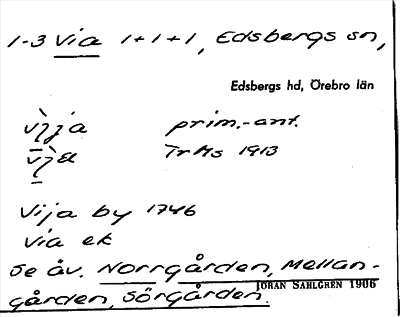 1-3 Via 1+1+1, Edsbergs sn,
Edsbergs hd, Örebro län
prim.-ant.
TrMs 1913
Vija by 1746
Via ek
Se äv. Norrgården, Mellan-
gården, Sörgården.
JÖRAN SAHLGREN 1906